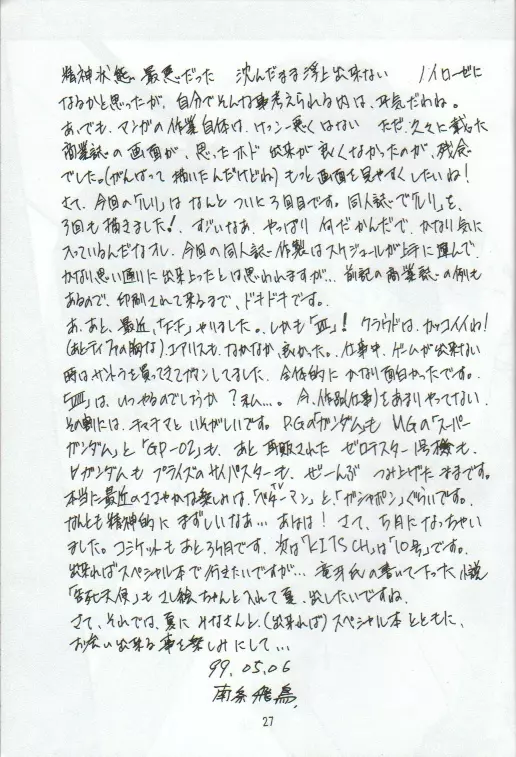 精神状態、最悪だった 沈んだまま浮上出来ない ノイローゼに
なるかと思ったが、自分でそんな事考えられる内は、平気だわね。
あ、でも、マンガの作業自体は、けっこー悪くはない ただ、久々に載った
商業誌の画面が、思ったホド 出来が良くなかったのが、残念
でした。(がんばって 描いたんだけどね) もっと画面を見やすくしたいね!
さて、今回の「ルリ」は なんと ついに3回目です。同人誌で「ルリ」を、
3回も描きました! すごいなあ、やっぱり 何だかんだで、かなり気に
入っているんだなオレ、今回の同人誌 作製はスケジュールが上手に運んで、
かなり思い通りに出来上ったとは思われますが… 前記の商業誌の例も
あるので、印刷されて来るまで、ドキドキです。
あ、あと、最近、「F.F」やりました。しかも「Ⅶ」! クラウドは、カッコイイね!
(あとティファの胸な)、エアリスも、なかなか、良かった。仕事中、ゲームが出来ない
時はサントラを買ってきてガマンしてました。全体的に かなり面白かったです。
「Ⅷ」は、いつやるのでしょうか?私…。今、作品(仕事)をあまりやってない、
その割には、キチキチと いそがしいです。P.Gの「ガンダム」も MGの「スーパー
ガンダム」と「GP-02」も、あと 再販された ゼロテスター1号機も、
Vガンダムも プライズのサイバスターも、ぜーんぶ つみ上げたままです。
本当に最近のささやかな楽しみは、TV「ベターマン」と、「ガシャポン」ぐらいです。
なんとも精神的に まずしいなあ… あはは! さて、5月になっちゃい
ました。コミケットも あと3ヶ月です。次は「KITSCH」は「10号」です。
出来ればスペシャル本で行きたいですが… 竜牙氏の書いて下った小説
「告死天使」も さし絵ちゃんと入れて夏、出したいですね。
さて、それでは、夏に みなさんと、(出来れば) スペシャル本とともに、
お会い出来る事を楽しみにして…
99.05.06
南条飛鳥
27